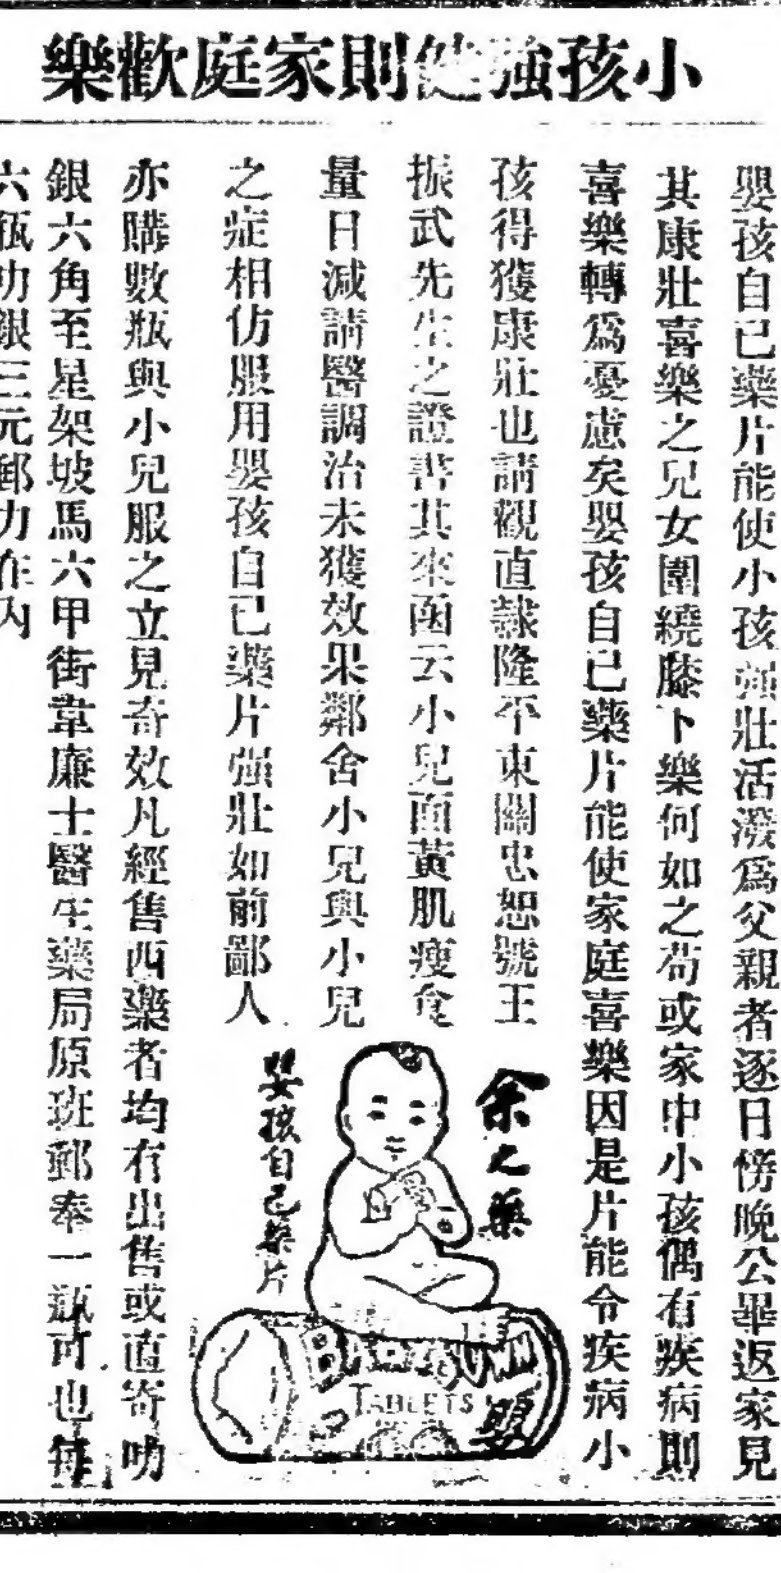 小孩強健則家庭歡樂
嬰孩自己藥片能使小孩强壯活潑爲父親者逐日傍晚公畢返家見
其康壯喜樂之兒女圍繞膝下樂何如之苟或家中小孩偶有疾病則
喜樂轉爲憂慮矣嬰孩自己藥片能使家庭喜樂因是片能令疾病小
孩得獲康壯也請觀直隸隆平東關忠恕號王
振武先生之證書其來函云小兒面黃肌瘦食
量日減請醫調治未獲效果鄰舍小兒與小兒
之症相仿服用嬰孩自己藥片强壯如前鄙人
亦購數瓶與小兒服之立見奇效凡經售西藥者均有出售或直寄叻
銀六角至星架坡馬六甲街韋廉士醫生藥局原班郵奉一瓶可也每
六瓶叻銀三元郵力在內
余之藥
嬰孩自己藥片
BABY'S OWN
TABLETS
嬰